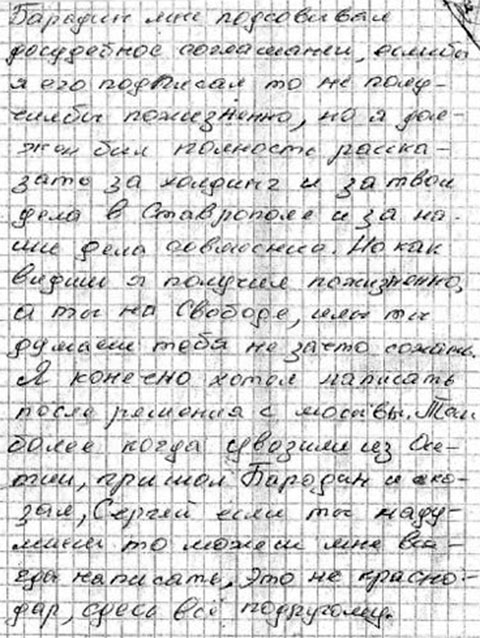 Барадин мне подсовывал
досудебное соглашании, еслибы
я его подписал то не полу-
чилбы пожизненно, но я дол-
жен был полность расска-
зать за холдинг и за твои
дела в Ставрополе и за на-
ши дела совмесние. Но как
видиш я получил пожизненно,
а ты на Свободе, или ты
думаеш тебя не зачто сожать.
Я конечно хотел написать
после решения с москвы. Тем
более когда увозили из Осе-
тии, пришол Бародин и ска-
зал, Сергей если ты наду-
маеш то можеш мне все-
гда написать, Это не красно-
дар, сдесь всё подругому.